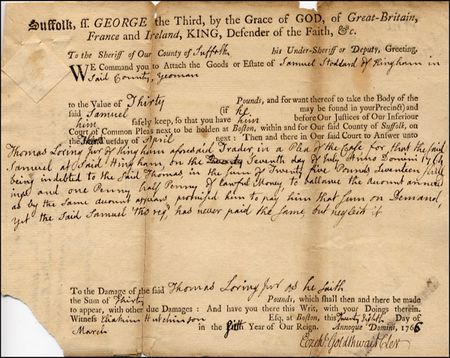 Suffolk, ss. GEORGE the Third, by the Grace of GOD, of Great-Britain,
France and Ireland, KING, Defender of the Faith, &c.
To the Sheriff of Our County of Suffolk, his Under-Sheriff or Deputy, Greeting.
WE Command you to Attach the Goods or Estate of Samuel Stoddard of Hingham in
Said County, Yeoman
to the Value of Thirty Pounds, and for want thereof to take the Body of the
said Samuel (if he may be found in your Precinct) and
him safely keep, so that you have him before our Justices of Our Inferiour
Court of Common Pleas next to be holden at Boston, within and for Our said County of Suffolk, on
the Tuesday of April next: Then and there in Our said Court to Answer unto
Thomas Loring Jnr of Hingham aforesaid Trader in a Plea of the Case for, that the said
Samuel at said Hingham, on the Seventh day of July Anno Domini 1764
being indebted to the Said Thomas in the Sum of Twenty five Pounds Seventeen shill
ings and one Penny half Penny of lawful Money to ballance the account annexed
as by the same account appears, promised him to pay him that Sum on Demand,
yet the Said Samuel tho' reqd, has never paid the same but neglects it
To the Damage of the said Thomas Loring Jnr as he saith
the Sum of Thirty Pounds, which shall then and there be made
to appear, with other due Damages: And have you there this Writ, with your Doings therein.
Witness Eliakim Hutchinson Esq; at Boston, this Twenty Eighth Day of
March in the Year of Our Reign. Annoque Domini, 1766
Ezekl Goldthwait Cler